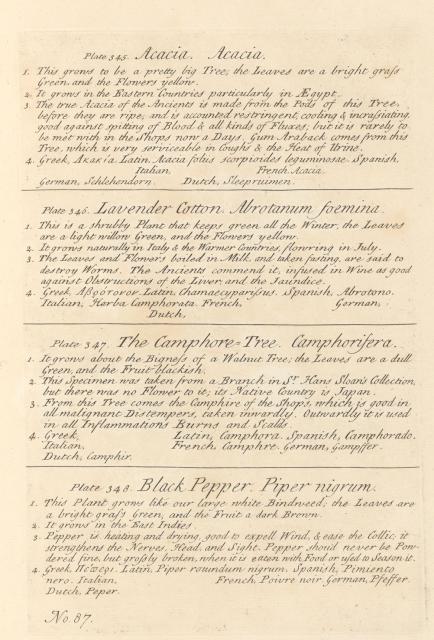 Plate 345. Acacia. Acacia.
1. This grows to be a pretty big Tree; the Leaves are a bright graſs
Green, and the Flowers yellow.
2. It grows in the Eastern Countries particularly in Ægypt.
3. The true Acacia of the Ancients is made from the Pods of this Tree,
before they are ripe; and is accounted restringent, cooling & incraſsating,
good against spitting of Blood & all kinds of Fluxes; but it is rarely to
be met with in the Shops now a Days. Gum Araback comes from this
Tree, which is very serviceable in Coughs & the Heat of Urine.
4. Greek, Ακακία. Latin, Acacia foliis scorpioides leguminosae. Spanish,
Italian, French, Acacia.
German, Schlehendorn. Dutch, Sleepruimen.
Plate 346. Lavender Cotton. Abrotanum foemina.
1. This is a shrubby Plant that keeps green all the Winter; the Leaves
are a light willow Green, and the Flowers yellow.
2. It grows naturally in Italy & the Warmer Countries, flowring in July.
3. The Leaves and Flowers boiled in Milk, and taken fasting, are said to
destroy Worms. The Ancients commend it, infused in Wine as good
against Obstructions of the Liver, and the Jaundice.
4. Greek, Latin, Chamaecypariſsus. Spanish, Abrotono.
Italian, Herba Camphorata. French, German,
Dutch,
Plate 347. The Camphore=Tree. Camphorifera.
1. It grows about the Bigneſs of a Walnut Tree; the Leaves are a dull
Green, and the Fruit blackish.
2. This Specimen was taken from a Branch in Sr. Hans Sloan's Collection,
but there was no Flower to it; its Native Country is Japan.
3. From this Tree comes the Camphire of the Shops, which is good in
all malignant Distempers, taken inwardly. Outwardly it is used
in all Inflammations Burns and Scalds.
4. Greek, Latin, Camphora. Spanish, Camphorado.
Italian, French, Camphre. German, Gampffer.
Dutch, Camphir.
Plate 348. Black Pepper. Piper nigrum.
1. This Plant grows like our large white Bindweed; the Leaves are
a bright graſs Green, and the Fruit a dark Brown.
2. It grows in the East Indies.
3. Pepper is heating and drying, good to expell Wind, & ease the Collic; it
strengthens the Nerves, Head, and Sight. Pepper shoud never be Pow-
dered fine, but groſsly broken, when it is eaten with Food or used to Season it.
4. Greek, Latin, Piper roundum nigrum. Spanish, Pimiento
nero. Italian, French, Poivre noir. German, Pfeffer.
Dutch, Peper.
No. 87.